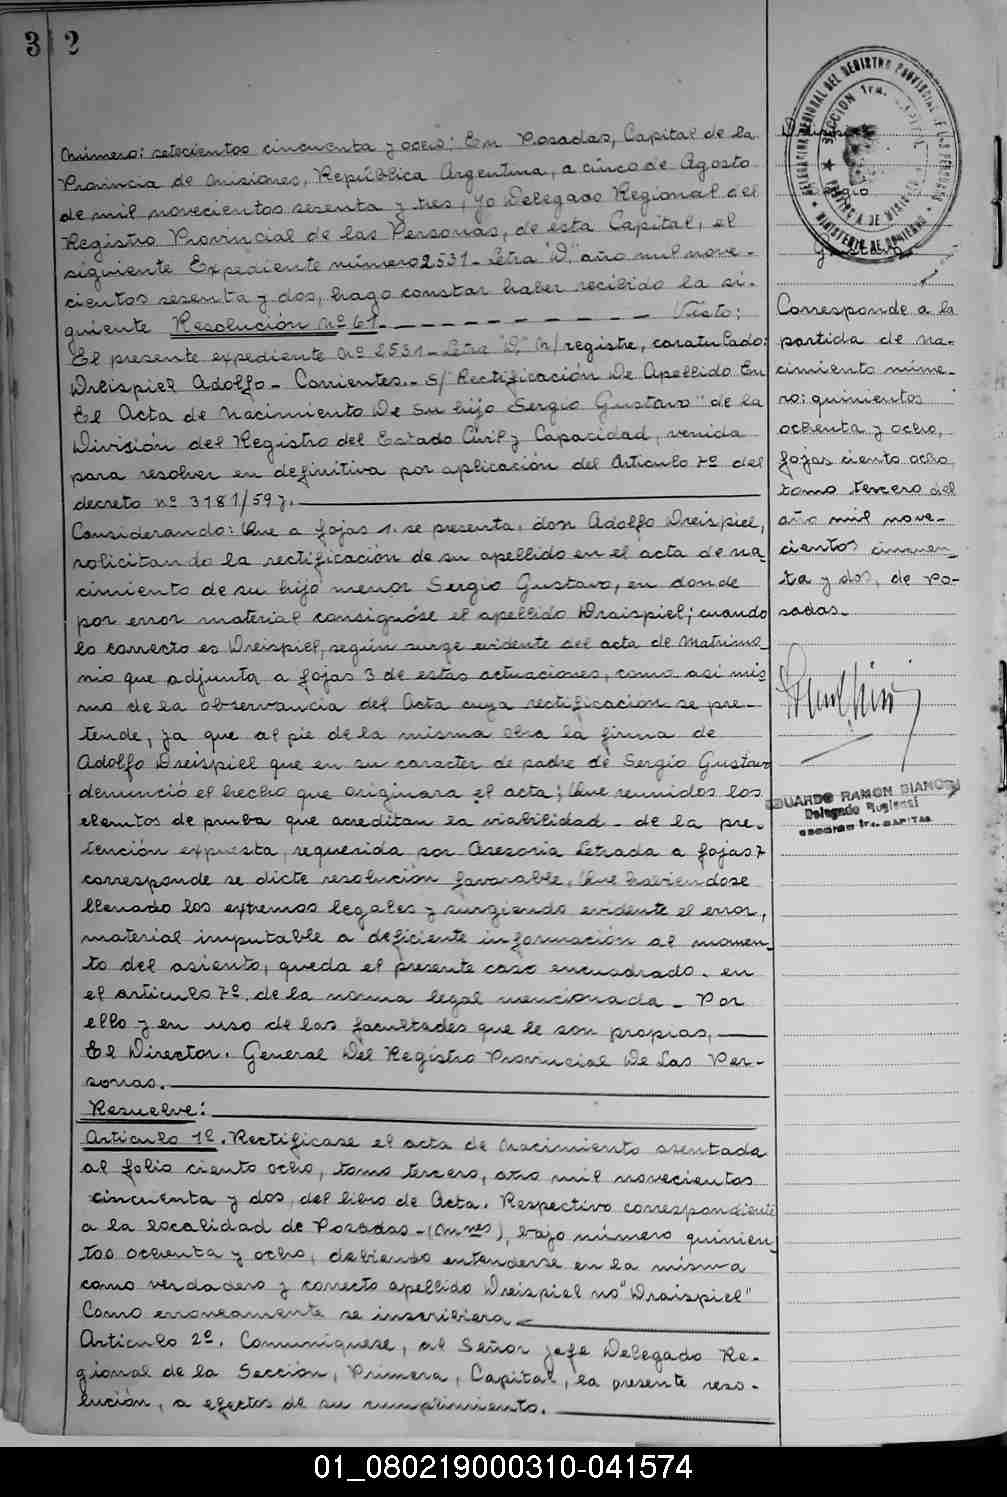 3 2
Número: setecientos cincuenta y ocho: En Posadas, Capital de la
Provincia de Misiones, República Argentina, a cinco de Agosto
de mil novecientos sesenta y tres, yo Delegado Regional del
Registro Provincial de las Personas, de esta Capital, el
siguiente Expediente número 2531- Letra "D", año mil nove-
cientos sesenta y dos, hago constar haber recibido la si-
guiente Resolución Nº 61. Visto:
El presente expediente Nº 2531- Letra "D", N/registre, caratulado:
Dreispiel Adolfo - Corrientes.- S/ Rectificación De Apellido En
El Acta de Nacimiento De Su hijo Sergio Gustavo" de la
División del Registro del Estado Civil y Capacidad, venida
para resolver en definitiva por aplicación del Articulo 7º del
decreto Nº 3181/59 y.
Considerando: Que a fojas 1. se presenta, don Adolfo Dreispiel,
solicitando la rectificación de su apellido en el acta de na-
cimiento de su hijo menor Sergio Gustavo, en donde
por error material consignóse el apellido Draispiel; cuando
lo correcto es Dreispiel, según surge evidente del acta de Matrimo-
nio que adjunta a fojas 3 de estas actuaciones, como asi mis-
mo de la observancia del Acta cuya rectificación se pre-
tende, ya que al pie de la misma obra la firma de
Adolfo Dreispiel que en su caracter de padre de Sergio Gustavo
denunció el hecho que originara el acta; Que reunidos los
elemtos de prueba que acreditan la viabilidad - de la pre-
tención expuesta, requerida por Asesoria Letrada a fojas 7
corresponde se dicte resolución favorable. Que habiendose
llenado los extremos legales y surgiendo evidente el error,
material imputable a deficiente información al momen-
to del asiento, queda el presente caso encuadrado. en
el articulo 7º. de la norma legal mencionada - Por
ello y en uso de las facultades que le son propias,
El Director. General Del Registro Provincial De Las Per-
sonas.
Resuelve:
Articulo 1º. Rectificase el acta de nacimiento asentada
al folio ciento ocho, tomo tercero, año mil novecientos
cincuenta y dos, del libro de Acta. Respectivo correspondiente
a la localidad de Posadas - (Mnes), bajo número quinien-
tos ochenta y ocho, debiendo entenderse en la misma
como verdadero y correcto apellido Dreispiel no "Draispiel"
Como erroneamente se inscribiera -
Articulo 2º. Comuníquese, al Señor Jefe Delegado Re-
gional de la Sección, Primera, Capital, la presente reso-
lución, a efectos de su cumplimiento.
DELEGACION REGIONAL DEL REGISTRO PROVINCIAL DE LAS PERSONAS
SECCION 1ra. CAPITAL
PROVINCIA DE MISIONES
MINISTERIO DE GOBIERNO
Corresponde a la
partida de na-
cimiento núme-
ro: quinientos
ochenta y ocho,
fojas ciento ocho,
tomo tercero del
año mil nove-
cientos cincuen-
ta y dos, de Po-
sadas.
EDUARDO RAMON BIANCHI
Delegado Regional
SECCION 1ra. CAPITAL
01_080219000310-041574